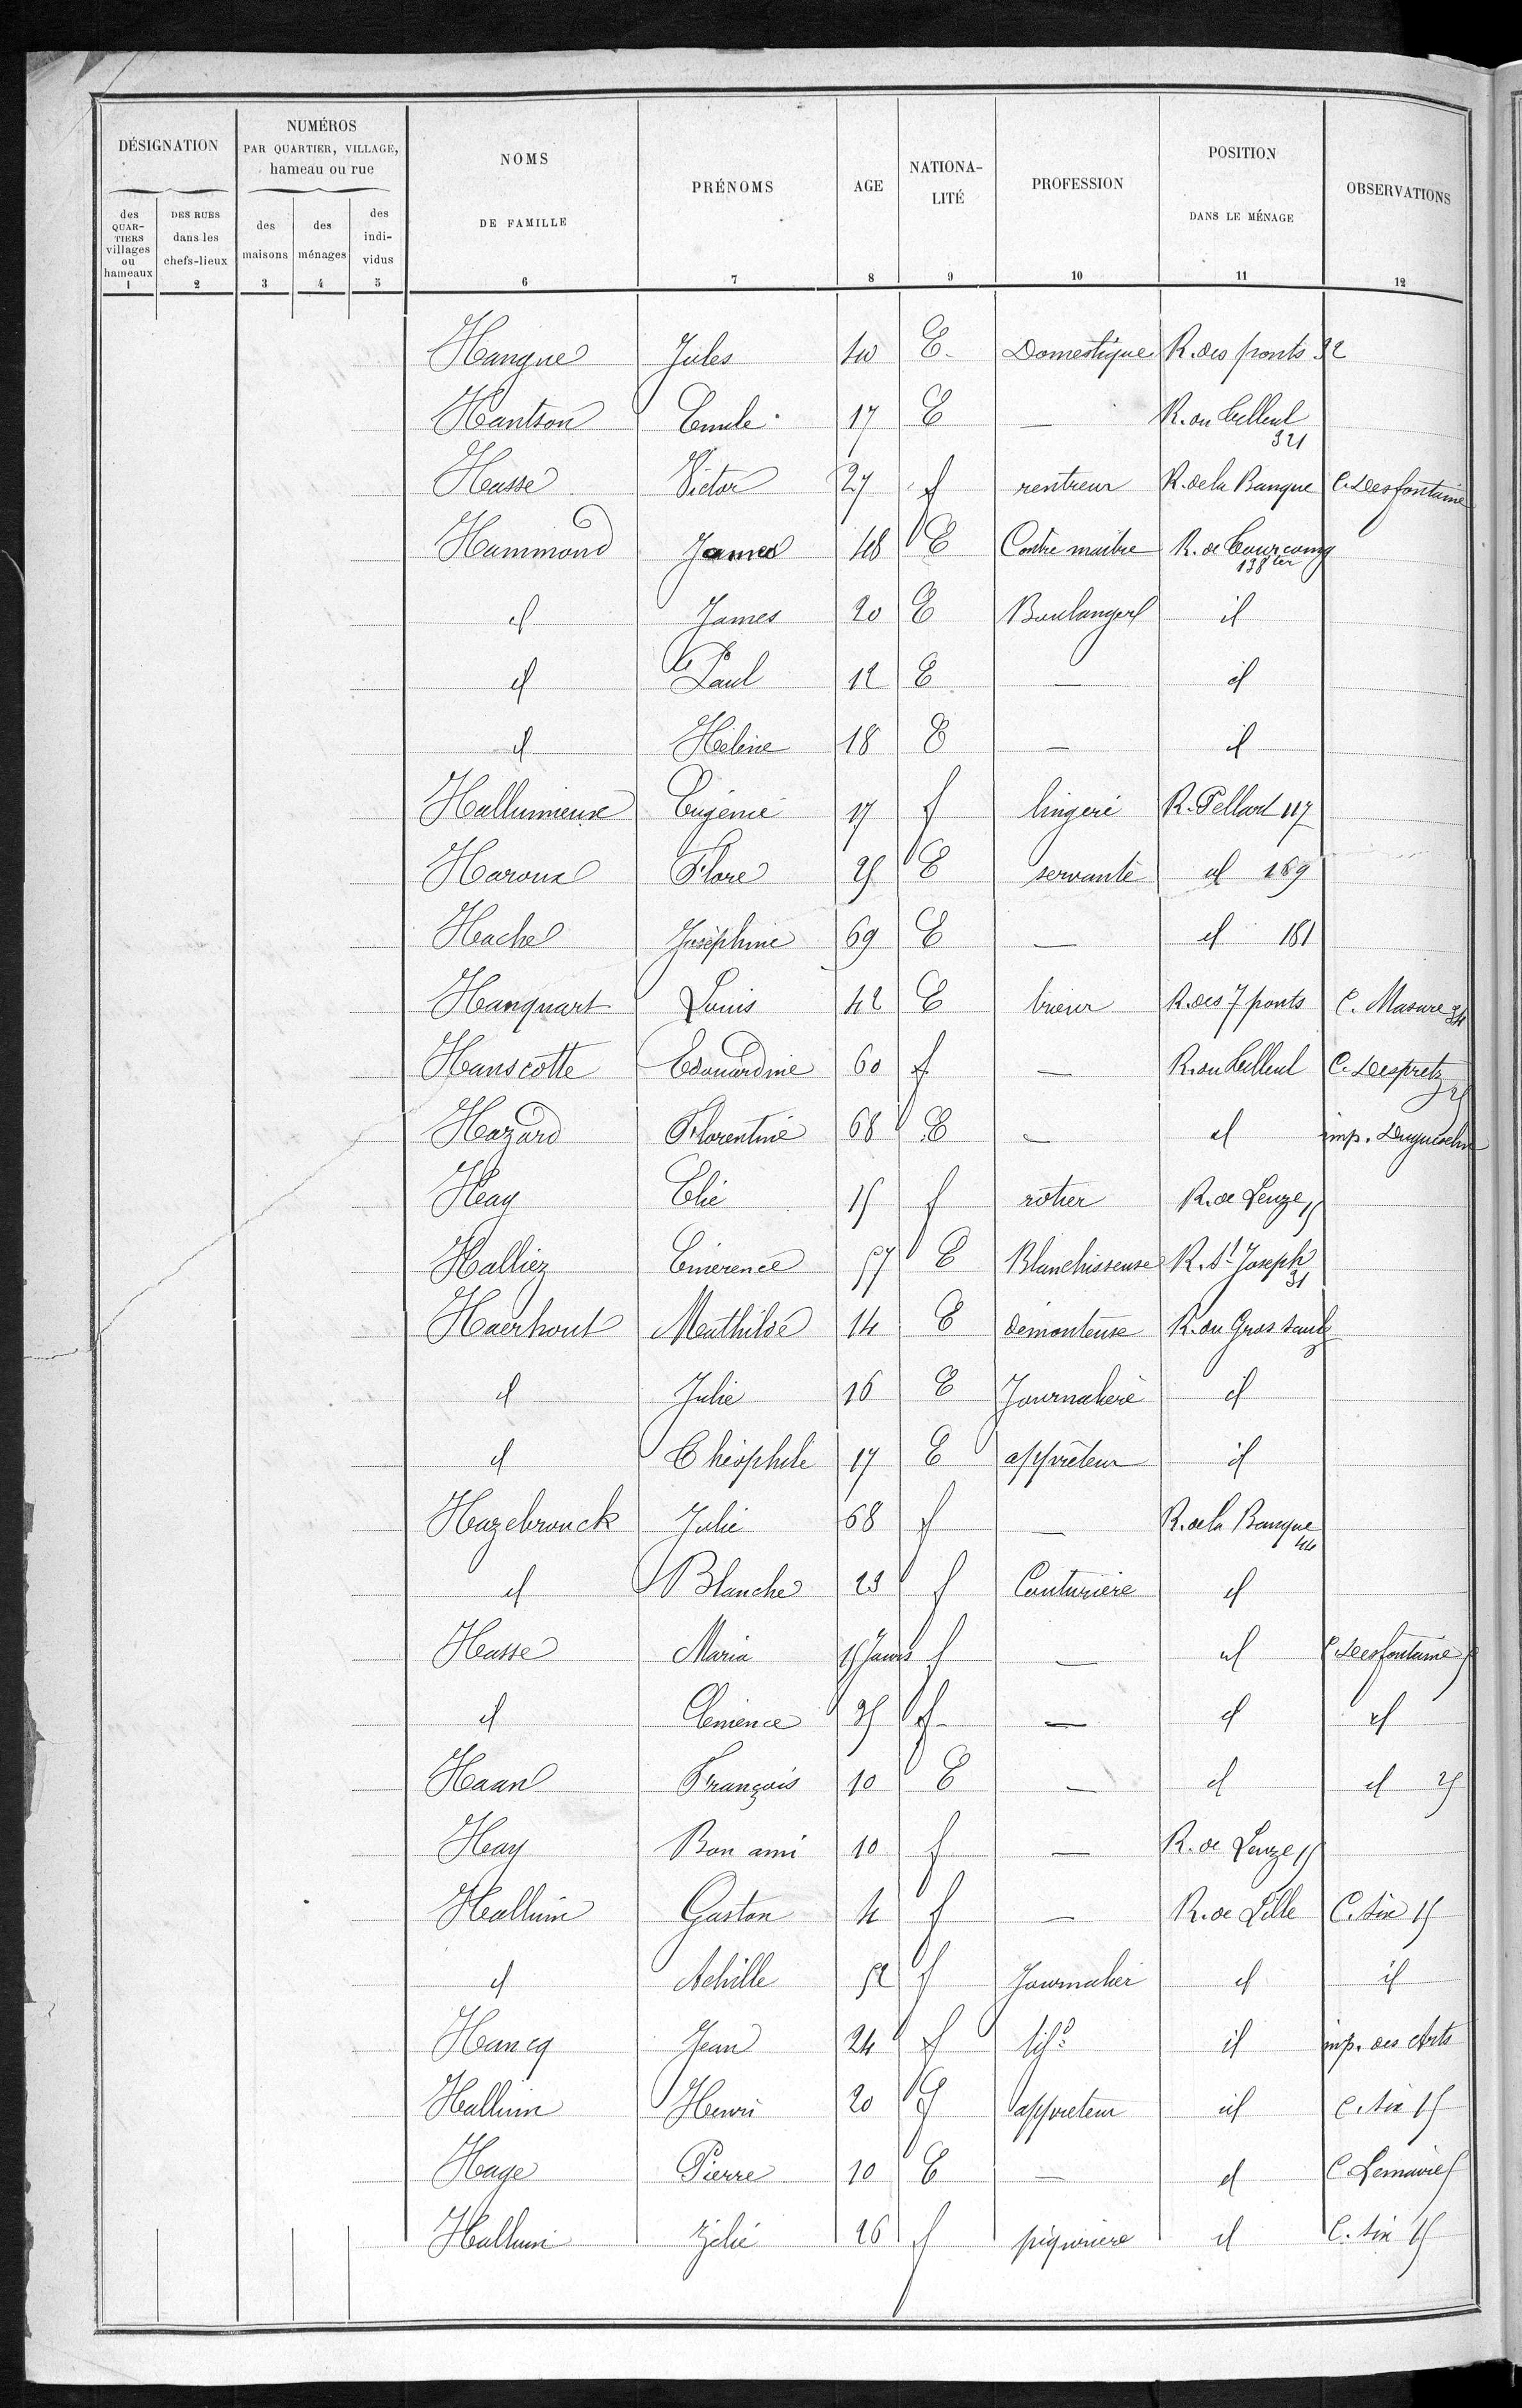 DÉSIGNATION NUMÉROS PAR QUARTIER, VILLAGE, hameau ou rue NOMS DE FAMILLE PRÉNOMS AGE NATIONA-LITÉ PROFESSION POSITION DANS LE MÉNAGE OBSERVATIONS
des QUAR-TIERS villages ou hameaux DES RUES dans les chefs-lieux des maisons des ménages des indi-vidus
1 2 3 4 5 6 7 8 9 10 11 12
Hangue Jules 40 E. Domestique R. des ponts 32
Hantson Emile 17 E — R. du Tilleul 321
Hasse Victor 27 f rentreur R. de la Banque C. Desfontaine
Hammond James 48 E Contre maitre R. de Tourcoing 138 ter
id James 20 E Boulanger id
id Paul 12 E — id
id Hélène 18 E — id
Hallumieux Eugénie 17 f lingère R. Pellart 117
Haroux Flore 25 E servante id 169
Hache Joséphine 69 E — id 181
Hanquart Louis 42 E trieur R. des 7 ponts C. Masure 34
Hanscotte Edouardine 60 f — R. du Tilleul C. Despretz 25
Hazard Florentine 68 E — id imp. Duquesne
Hay Elie 15 f rotier R. de Leuze 15
Halliez Emérence 57 E Blanchisseuse R. St Joseph 31
Haerhout Mathilde 14 E démonteuse R. du Gros saule
id Julie 16 E Journalière id
id Théophile 17 E apprêteur id
Hazebrouck Julie 68 f — R. de la Banque 44
id Blanche 23 f Couturière id
Hasse Maria 15 Jours f — id C. Desfontaine 5
id Clémence 35 f — id id
Haan François 10 E — id id 25
Hay Bon ami 10 f — R. de Leuze 15
Halluin Gaston 4 f — R. de Lille C. Six 15
id Achille 52 f Journalier id id
Hancq Jean 24 f tisd id imp. des Arts
Halluin Henri 20 f apprêteur id C. Six 15
Hage Pierre 10 E — id C. Lemaire 5
Halluin Zélie 26 f piqurière id C. Six 15